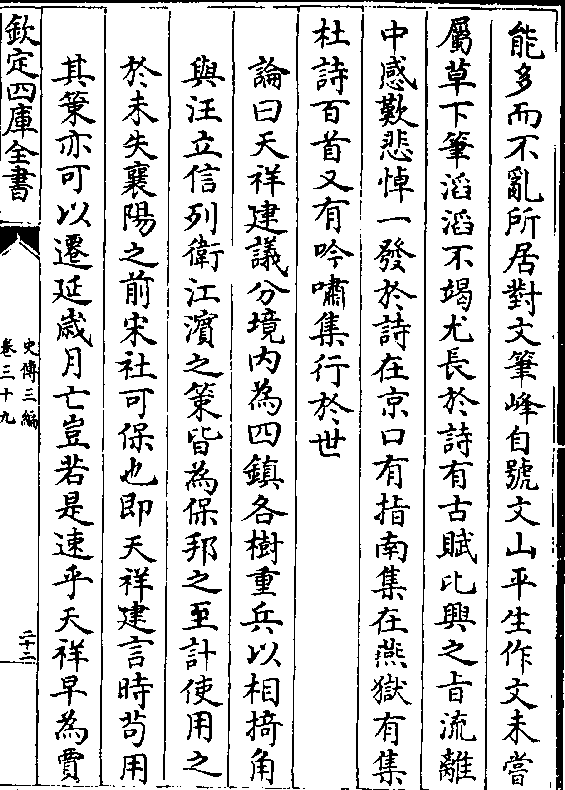 能多而不亂所居對文筆峰自號文山平生作文未嘗
屬草下筆滔滔不竭尤長於詩有古賦比興之旨流離
中感歎悲悼一發於詩在京口有指南集在燕獄有集
杜詩百首又有吟嘯集行於世
論曰天祥建議分境内為四鎮各樹重兵以相掎角
與汪立信列衛江濵之策皆為保邦之至計使用之
於未失襄陽之前宋社可保也即天祥建言時茍用
其策亦可以遷延歲月亡豈若是速乎天祥早為賈
欽定四庫全書
史傳三編
卷三十九
二十二